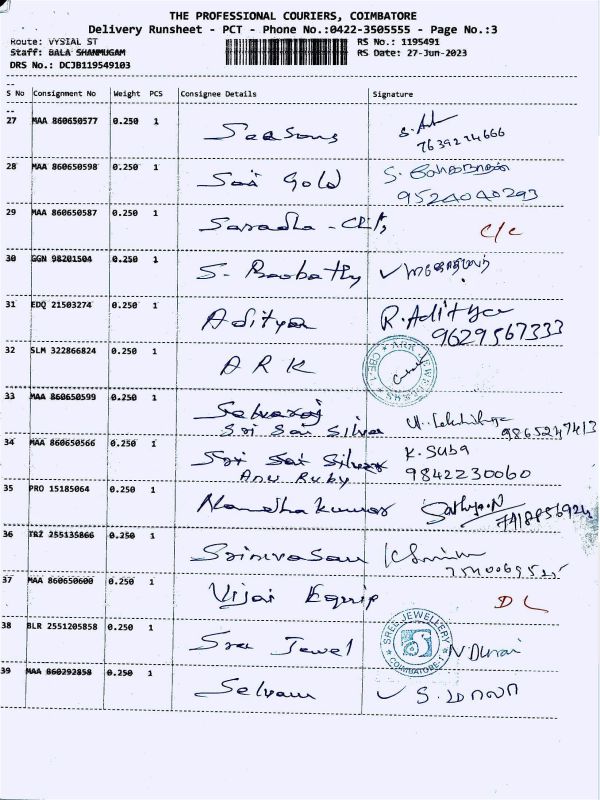 THE PROFESSIONAL COURIERS, COIMBATORE
Delivery Runsheet - PCT - Phone No.:0422-3505555 - Page No.:3
Route: VYSIAL ST RS No.: 1195491
Staff: BALA SHANMUGAM RS Date: 27-Jun-2023
DRS No.: DCJB119549103
S No Consignment No Weight PCS Consignee Details Signature
27 MAA 860650577 0.250 1 Seasons
7639274666
28 MAA 860650598 0.250 1 Sai Gold S.
9524040293
29 MAA 860650587 0.250 1 Saradha - C/C
30 GGN 98201504 0.250 1 S.
31 EDQ 21503274 0.250 1 Aditya R. Aditya
9629567333
32 SLM 322866824 0.250 1 A R K
33 MAA 860650599 0.250 1 Selvaraj
Sri Sai Silver 9865247413
34 MAA 860650566 0.250 1 Sri Sai Silver K. Suba
Anu Ruby 9842230060
35 PRO 15185064 0.250 1 Nandha kumar Sathya.N
36 TRZ 255135866 0.250 1 Srinivasan
37 MAA 860650600 0.250 1 Vijai Equip D L
38 BLR 2551205858 0.250 1 Sree Jewel SREE JEWELLERY COIMBATORE N. Durai
39 MAA 860292858 0.250 1 Selvam S. மாலா